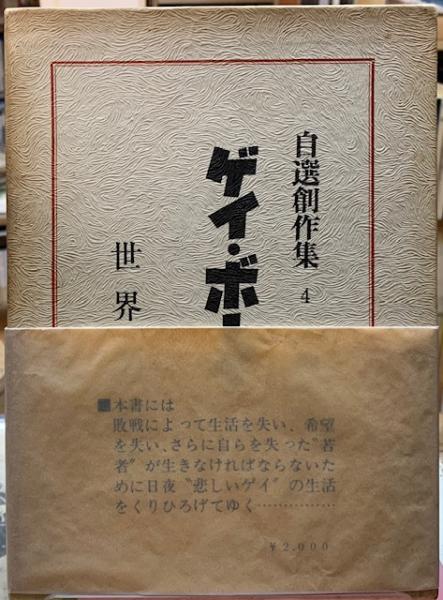 自選創作集 4
ゲイ・ボー
世界
■本書には
敗戦によって生活を失い、希望
を失い、さらに自らを失った〝若
者〟が生きなければならないた
めに日夜〝悲しいゲイ〟の生活
をくりひろげてゆく…………
¥2,000